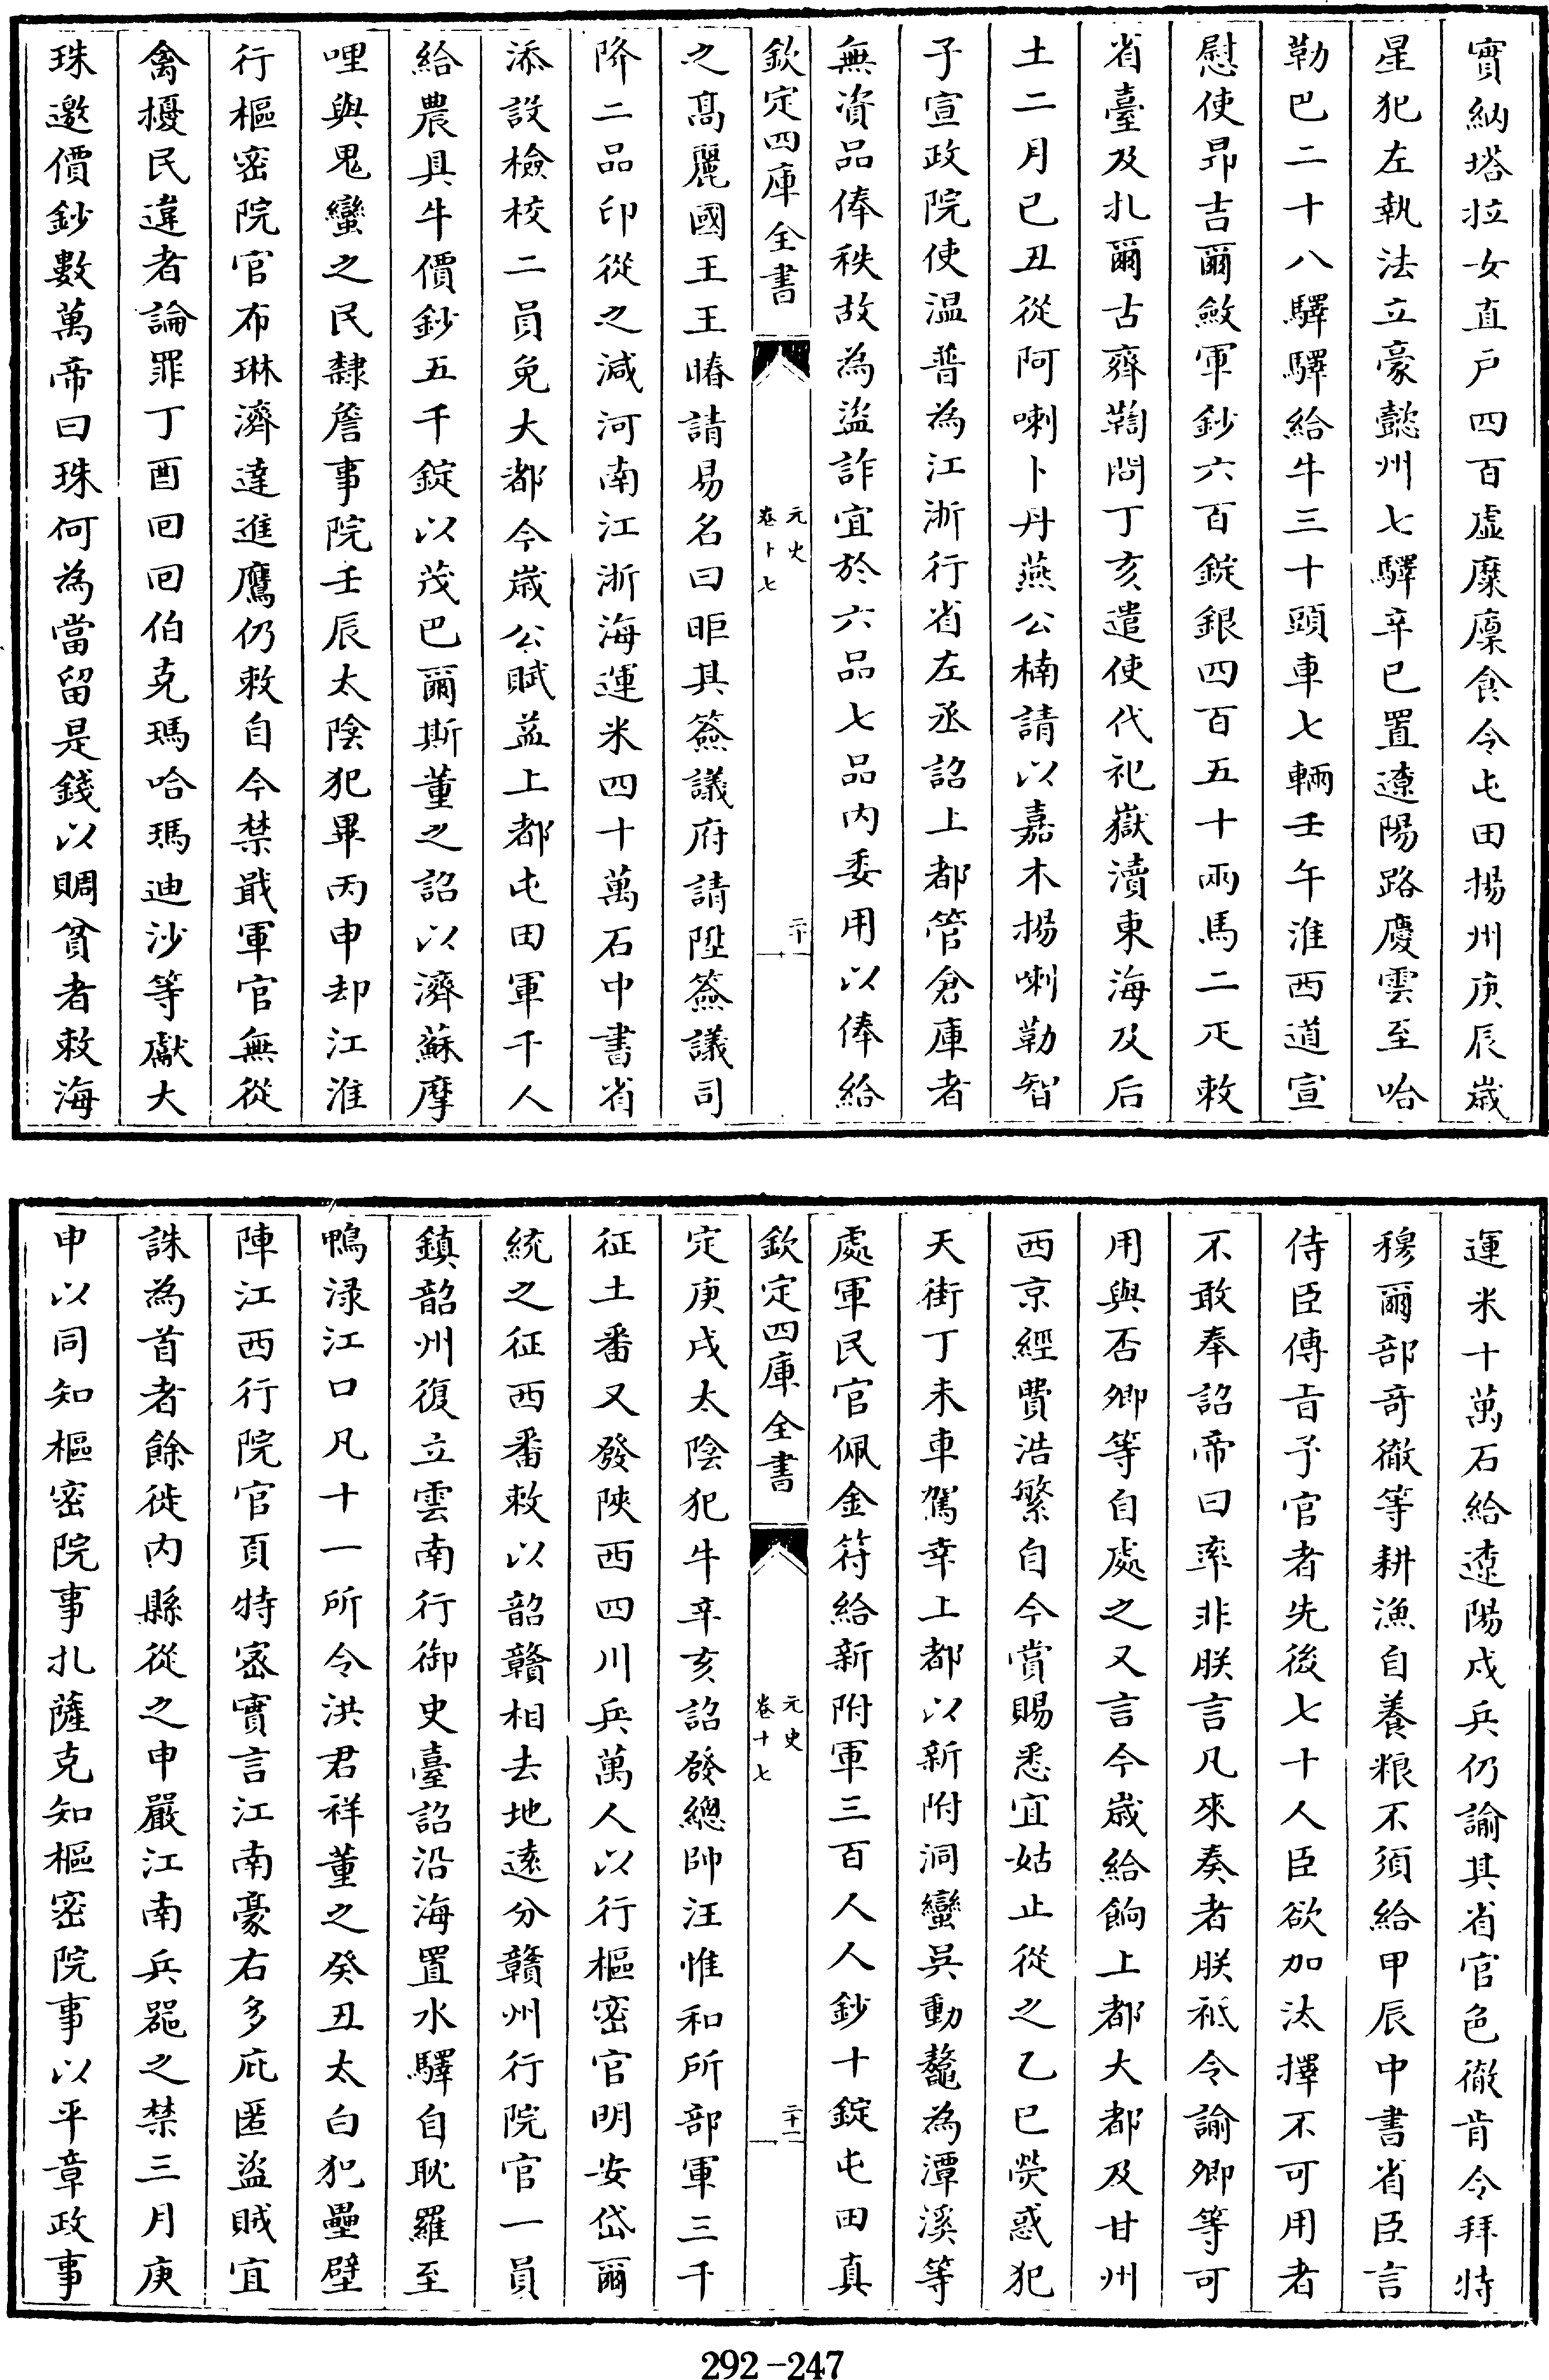 實納塔拉女直戶四百虛糜廩食令屯田揚州庚辰歲
星犯左執法立豪懿州七驛辛巳置遼陽路慶雲至哈
勒巴二十八驛驛給牛三十頭車七輛壬午淮西道宣
慰使昂吉爾斂軍鈔六百錠銀四百五十兩馬二疋敕
省臺及扎爾古齊鞫問丁亥遣使代祀嶽瀆東海及后
土二月己丑從阿喇卜丹燕公楠請以嘉木揚喇勒智
子宣政院使温普為江浙行省左丞詔上都管倉庫者
無資品俸秩故為盜詐宜於六品七品內委用以俸給
欽定四庫全書
元史
卷十七
二十一
之髙麗國王王暙請易名曰昛其簽議府請陞簽議司
降二品印從之減河南江浙海運米四十萬石中書省
添設檢校二員免大都今歲公賦益上都屯田軍千人
給農具牛價鈔五千錠以茂巴爾斯董之詔以濟蘇摩
哩與鬼蠻之民隸詹事院壬辰太陰犯畢丙申却江淮
行樞密院官布琳濟達進鷹仍敕自今禁戢軍官無從
禽擾民違者論罪丁酉回回伯克瑪哈瑪迪沙等獻大
珠邀價鈔數萬帝曰珠何為當留是錢以賙貧者敕海
運米十萬石給遼陽戍兵仍諭其省官色徹肯令拜特
穆爾部竒徹等耕漁自養粮不須給甲辰中書省臣言
侍臣傳㫖予官者先後七十人臣欲加汰擇不可用者
不敢奉詔帝曰率非朕言凡來奏者朕祗令諭卿等可
用與否卿等自處之又言今歲給餉上都大都及甘州
西京經費浩繁自今賞賜悉宜姑止從之乙巳熒惑犯
天街丁未車駕幸上都以新附洞蠻吳動鼇為潭溪等
處軍民官佩金符給新附軍三百人人鈔十錠屯田真
欽定四庫全書
元史
卷十七
二十一
定庚戌太陰犯牛辛亥詔發總帥汪惟和所部軍三千
征土番又發陝西四川兵萬人以行樞密官明安岱爾
統之征西番敕以韶贛相去地逺分贛州行院官一員
鎮韶州復立雲南行御史臺詔沿海置水驛自耽羅至
鴨淥江口凡十一所令洪君祥董之癸丑太白犯壘壁
陣江西行院官頁特密實言江南豪右多庇匿盜賊宜
誅為首者餘徙內縣從之申嚴江南兵噐之禁三月庚
申以同知樞密院事扎薩克知樞密院事以平章政事
292-247